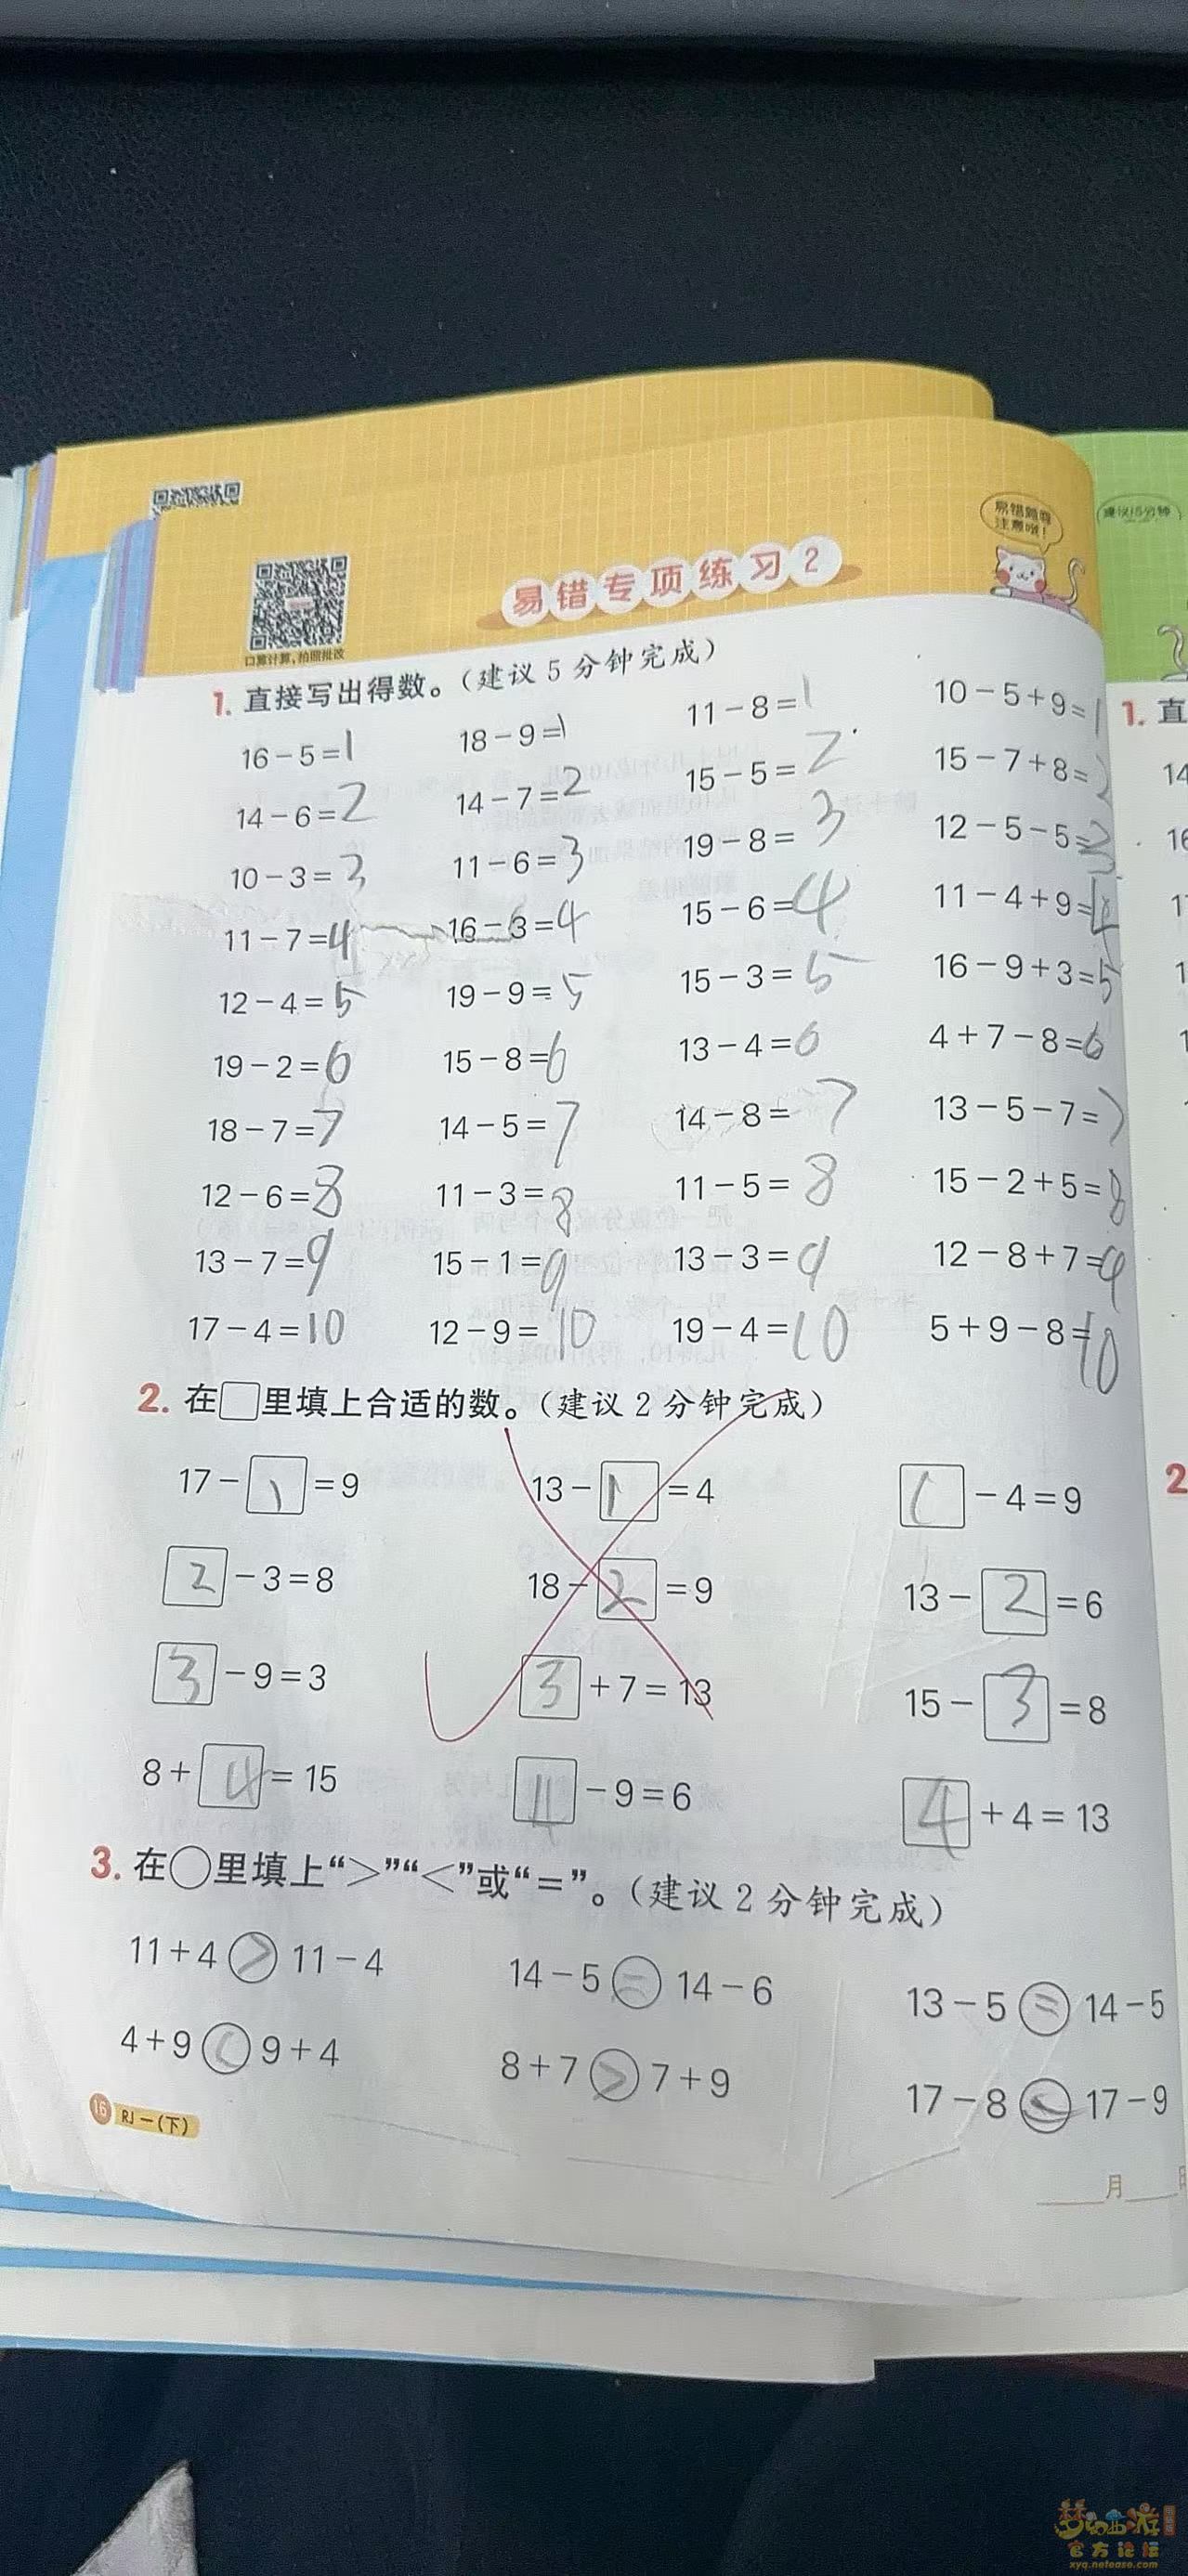 易错题要
注意哦!
建议15分钟
易错专项练习2
口算计算,拍照批改
1. 直接写出得数。(建议 5 分钟完成)
16-5=1 18-9=1 11-8=1 10-5+9=1
14-6=2 14-7=2 15-5=2 15-7+8=2
10-3=3 11-6=3 19-8=3 12-5-5=3
11-7=4 16-3=4 15-6=4 11-4+9=4
12-4=5 19-9=5 15-3=5 16-9+3=5
19-2=6 15-8=6 13-4=6 4+7-8=6
18-7=7 14-5=7 14-8=7 13-5-7=7
12-6=8 11-3=8 11-5=8 15-2+5=8
13-7=9 15-1=9 13-3=9 12-8+7=9
17-4=10 12-9=10 19-4=10 5+9-8=10
2. 在□里填上合适的数。(建议 2 分钟完成)
17-1=9 13-1=4 1-4=9
2-3=8 18-2=9 13-2=6
3-9=3 3+7=13 15-3=8
8+4=15 4-9=6 4+4=13
3. 在○里填上“>”“<”或“=”。(建议 2 分钟完成)
11+4>11-4 14-5=14-6 13-5=14-5
4+9<9+4 8+7>7+9 17-8<17-9
16 RJ一(下)
月
1. 直
14
16
2
梦幻西游
官方论坛
xyq.netease.com